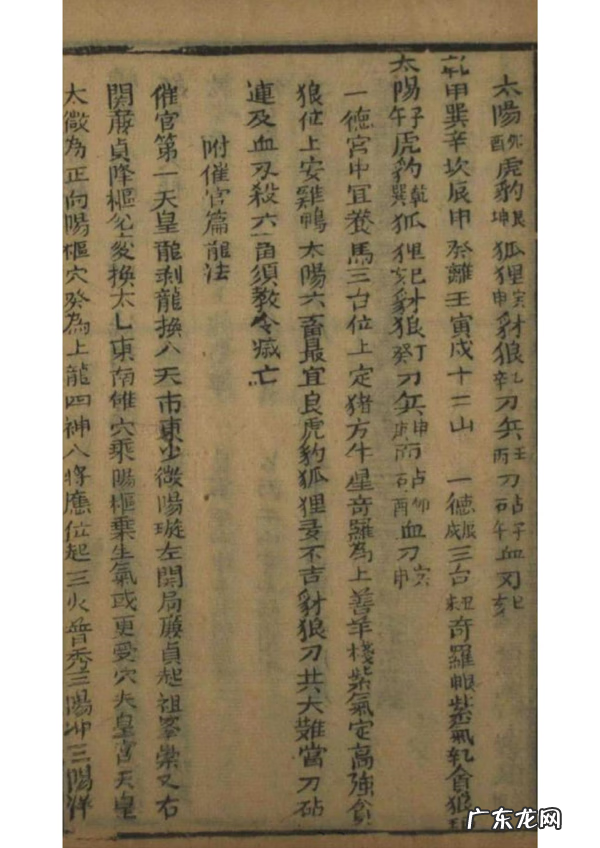 太陽卯酉虎豹艮坤狐狸寅申豺狼乙辛刀兵壬丙刀砧子午血刃巳亥
乾甲巽辛坎辰申癸離壬寅戌十二山 一德辰戌三台丑未奇羅 紫氣乾貪狼
太陽子午虎豹乾巽狐狸寅巳豺狼丁癸刀兵申 砧卯酉血刀亥申
一德宮中宜養馬三台位上定猪方牛星奇羅為上善羊棧紫氣定高強貪
狼位上安雞鴨太陽六畜最宜良虎豹狐狸 不吉豺狼刀共大難當刀砧
連及血刃殺六畜須教令瘟亡
附催官篇龍法
催官第一天皇龍剥龍換八天市東少微陽璇左開局廉貞起祖峯崇又右
開廉貞降樞 変換太乙東南 穴乘陽樞乗生氣或更受穴天皇宮天皇
太微為正向陽樞穴癸為上龍四神八將應位起三火晉秀三陽冲三陽洋
广东龙网